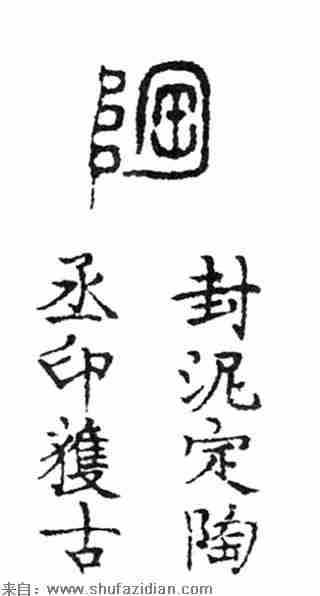 陶
封泥定陶
丞印獲古
来自：www.shufazidian.com